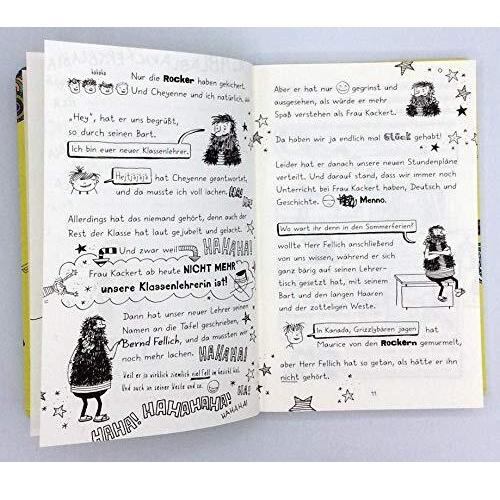 hahaha
Nur die Rocker haben gekichert.
Und Cheyenne und ich natürlich,
„Hey", hat er uns begrüßt,
so durch seinen Bart.
Ich bin euer neuer Klassenlehrer.
Hejtjäjäjä hat Cheyenne geantwortet,
und da musste ich voll lachen. HAHA!
HAHA!
Allerdings hat das niemand gehört, denn auch der
Rest der Klasse hat laut gejubelt und gelacht.
Und zwar weil HAHAHA!
Frau Kackert ab heute NICHT MEHR
unsere Klassenlehrerin ist!
Dann hat unser neuer Lehrer seinen
Namen an die Tafel geschrieben,
Bernd Fellich, und da mussten wir
noch mehr lachen. HAHAHA!
Weil er ja wirklich ziemlich viel Fell im Gesicht hat.
Und auch an seiner Weste und so.
HAHA! HAHAHAHA!
HAHAHA!
Aber er hat nur gegrinst und
ausgesehen, als würde er mehr
Spaß verstehen als Frau Kackert.
Da haben wir ja endlich mal Glück gehabt!
Leider hat er danach unsere neuen Stundenpläne
verteilt. Und darauf stand, dass wir immer noch
Unterricht bei Frau Kackert haben, Deutsch und
Geschichte. Menno.
Wo wart ihr denn in den Sommerferien?
wollte Herr Fellich anschließend
von uns wissen, während er sich
ganz bärig auf seinen Lehrer-
tisch gesetzt hat, mit seinem
Bart und den langen Haaren
und der zotteligen Weste.
In Kanada, Grizzlybären jagen hat
Maurice von den Rockern gemurmelt,
aber Herr Fellich hat so getan, als hätte er ihn
nicht gehört.
11